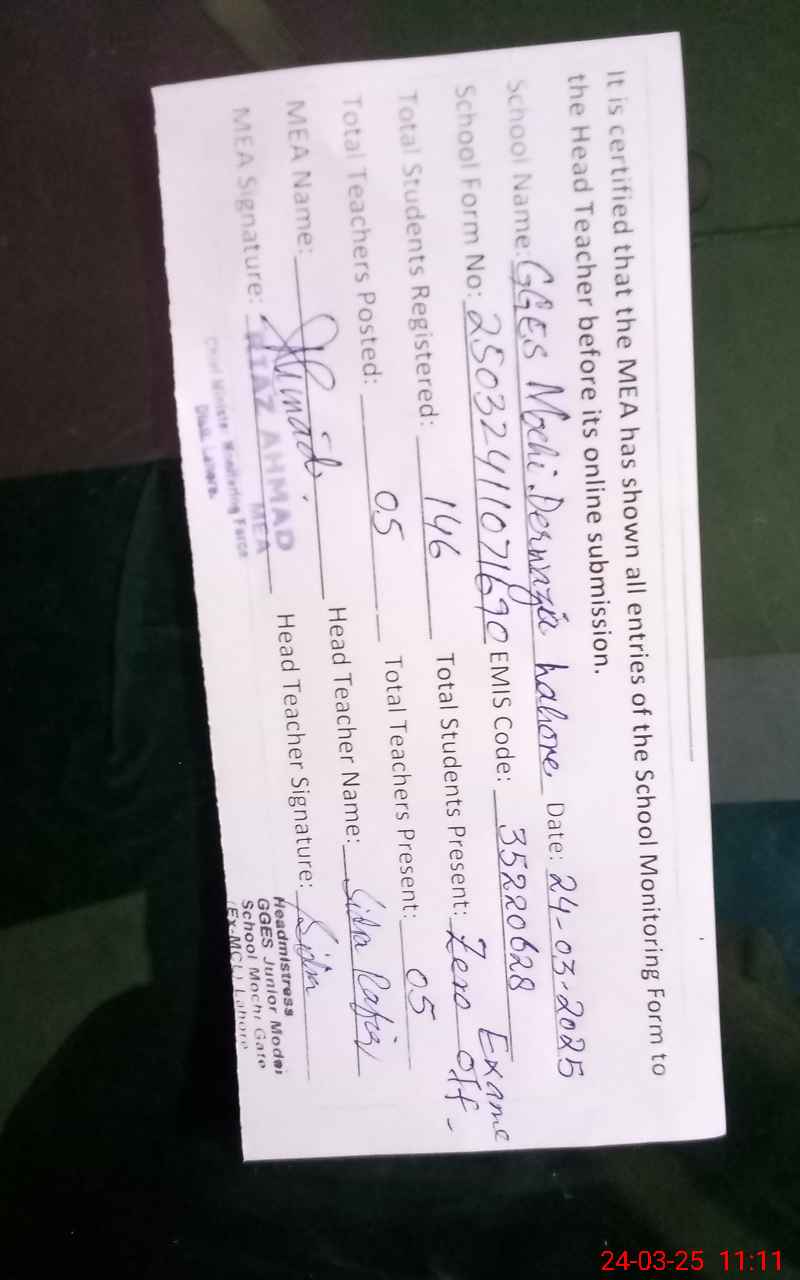 It is certified that the MEA has shown all entries of the School Monitoring Form to
the Head Teacher before its online submission.
School Name: GGES Mochi Derwazia Lahore Date: 24-03-2025
School Form No: 25032411071690 EMIS Code: 35220628
Total Students Registered: 146 Total Students Present: Zero Exame off-
Total Teachers Posted: 05 Total Teachers Present: 05
MEA Name: Ahmad Head Teacher Name: Sida
MEA Signature: Head Teacher Signature: Sida
RIAZ AHMAD
MEA
Chief Minister Monitoring Force
Distt. Lahore.
Headmistress
GGES Junior Model
School Mochi Gate
(Ex-MCL) Lahore
24-03-25 11:11